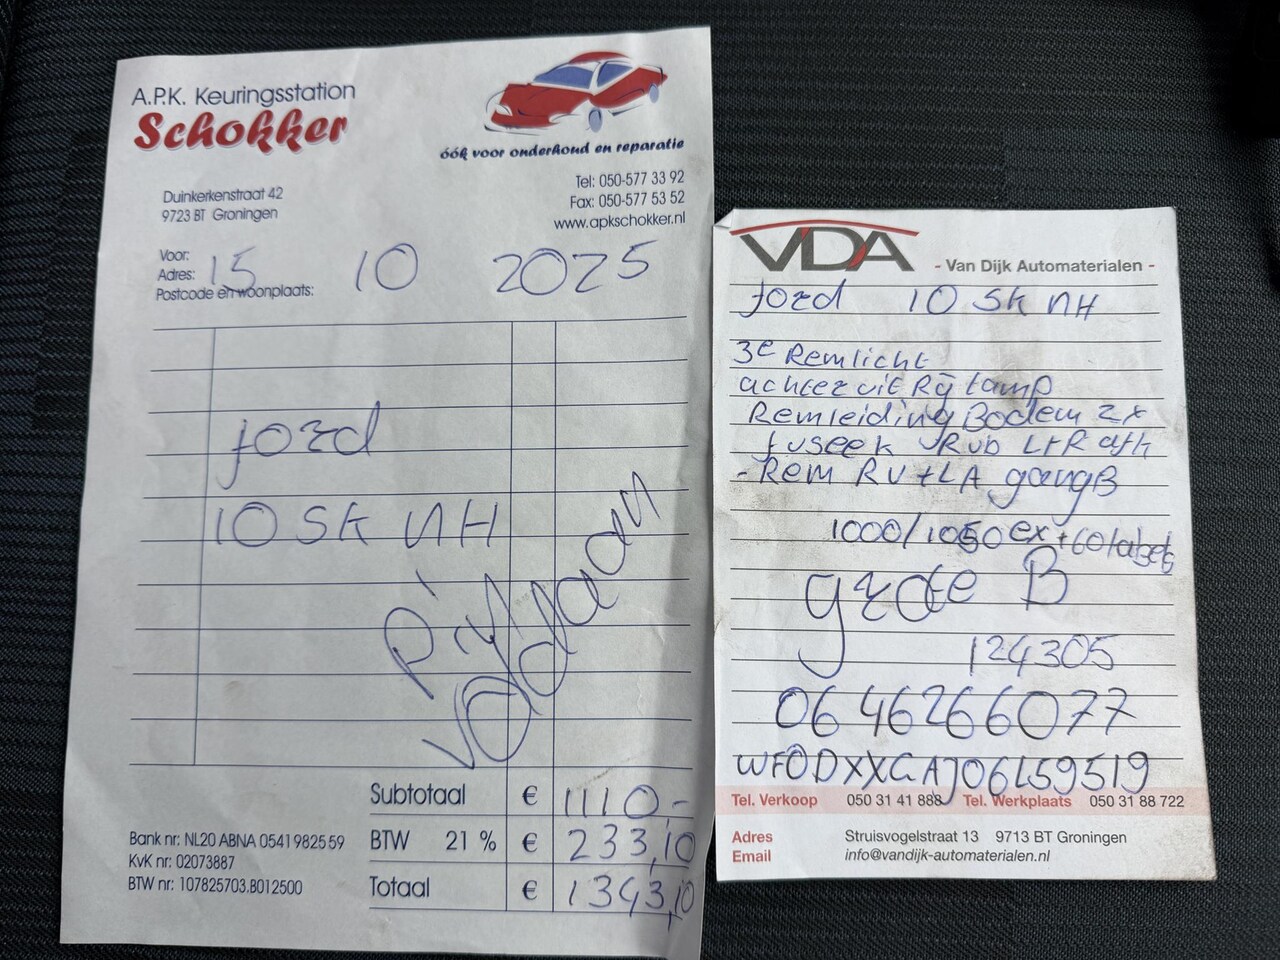 A.P.K. Keuringsstation
Schokker
óók voor onderhoud en reparatie
Duinkerkenstraat 42
9723 BT Groningen
Tel: 050-577 33 92
Fax: 050-577 53 52
www.apkschokker.nl
Voor:
Adres: 15 10 2025
Postcode en woonplaats:
ford
10 SK NH
Subtotaal € 1110,-
BTW 21 % € 233,10
Totaal € 1343,10
Bank nr: NL20 ABNA 0541 9825 59
KvK nr: 02073887
BTW nr: 107825703.B012500
VDA
- Van Dijk Automaterialen -
ford 10 SK NH
3e Remlicht
achteruit Rij lamp
Remleiding Bodem 2x
fuseek Rub L+R afk
- Rem RV+LA gangB
1000/1050 ex +
grote B
124305
06 46266077
WF0DXXGAJ06L59519
Tel. Verkoop 050 31 41 888 Tel. Werkplaats 050 31 88 722
Adres Struisvogelstraat 13 9713 BT Groningen
Email info@vandijk-automaterialen.nl